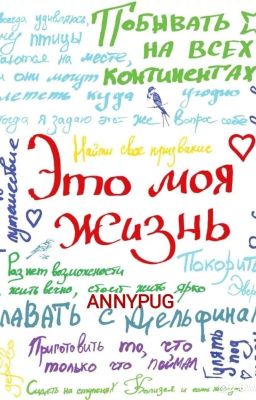 всегда удивляюсь,
ПОБЫВАТЬ
НА ВСЕХ
КОНТИНЕНТАХ
птицы
на месте,
они могут
лететь куда угодно
Тогда я задаю это же вопрос себе
Найти свое призвание
путешествие
Это моя
жизнь
Раз нет возможности
жить вечно, стоит жить ярко
Покорить
Эвер
ANNYPUG
ПЛАВАТЬ С ДЕЛЬФИНА
Приготовить то, что
только что поймал
Гулять
под
дерево
Сидеть на ступенях